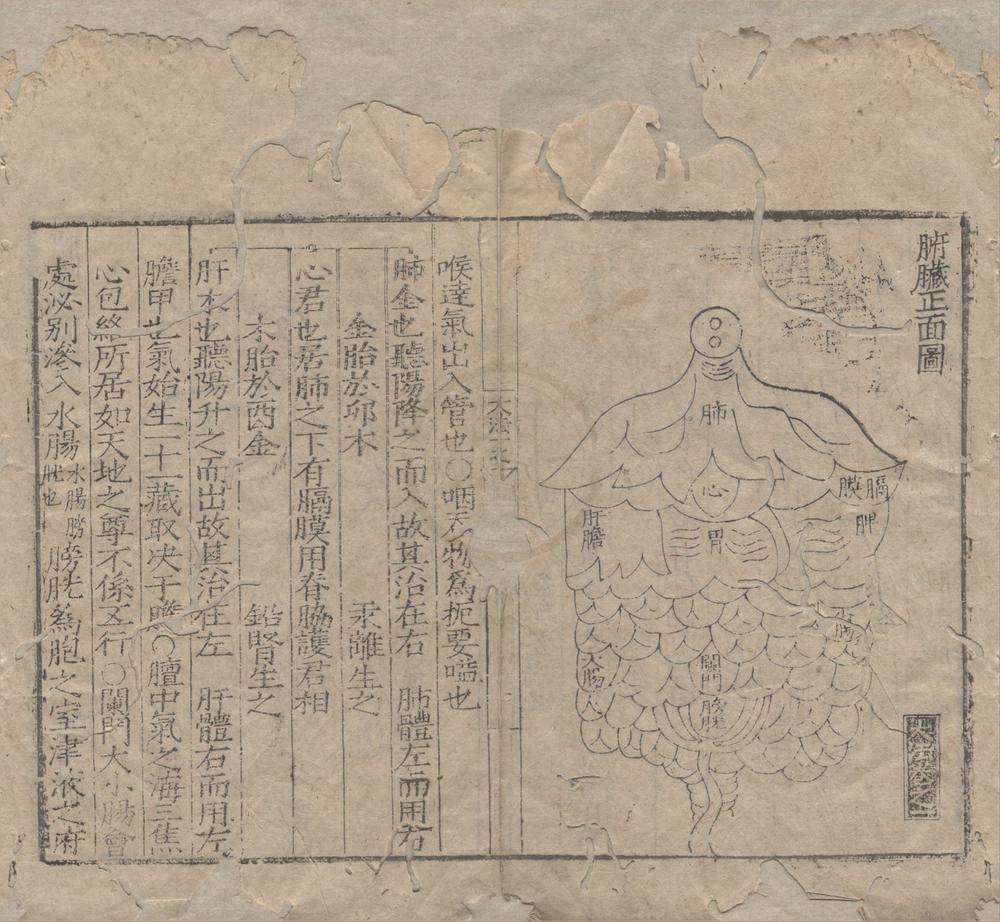 腑臟正面圖
肺
心
膈膜
脾
肝膽
胃
大腸
闌門
膀胱
喉達氣出入管也○咽天物爲扼要嗌也
肺金也聽陽降之而入故其治在右　肺體左而用右
金胎於卯木　汞離生之
心君也居肺之下有膈膜用脊脇護君相
木胎於酉金　鉛腎生之
肝木也聽陽升之而出故其治在左　肝體右而用左
膽甲也氣始生一十一藏取决于膽○膻中氣之海三焦
心包絡所居如天地之尊不係五行○闌門大小腸會
處泌別滲入水腸水腸膀胱也膀胱爲胞之室津液之府